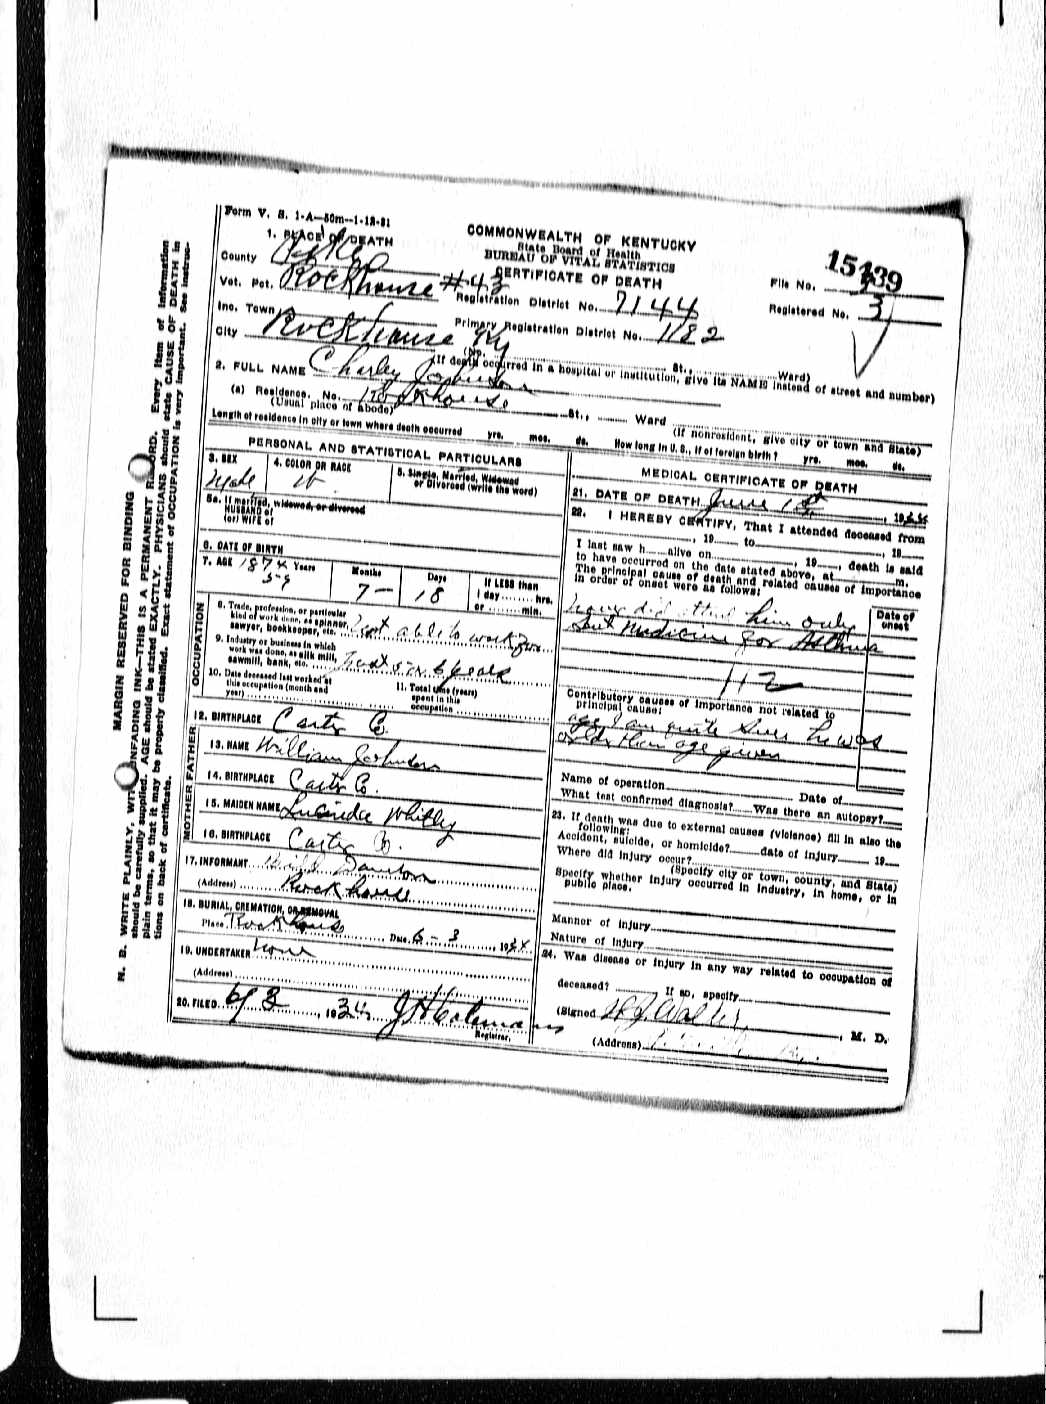 Form V. S. 1-A—50m—1-12-31
COMMONWEALTH OF KENTUCKY
State Board of Health
BUREAU OF VITAL STATISTICS
CERTIFICATE OF DEATH
15439
File No.
Registered No. 3
1. PLACE OF DEATH
County
Vot. Pct. Rockhouse #43
Registration District No. 7144
Inc. Town
Primary Registration District No. 1182
City Rockhouse Ky
(No. St., Ward)
(If death occurred in a hospital or institution, give its NAME instead of street and number)
2. FULL NAME Charley Johnson
(a) Residence. No. Rockhouse St., Ward
(Usual place of abode) (If nonresident, give city or town and State)
Length of residence in city or town where death occurred yrs. mos. ds. How long in U. S., if of foreign birth? yrs. mos. ds.
PERSONAL AND STATISTICAL PARTICULARS
3. SEX Male
4. COLOR OR RACE W
5. Single, Married, Widowed
or Divorced (write the word)
5a. If married, widowed, or divorced
HUSBAND of
(or) WIFE of
6. DATE OF BIRTH
7. AGE 1874 Years Months Days If LESS than
59 7— 18 1 day hrs.
or min.
OCCUPATION
8. Trade, profession, or particular
kind of work done, as spinner,
sawyer, bookkeeper, etc. not able to work for
9. Industry or business in which
work was done, as silk mill,
sawmill, bank, etc. last 5 or 6 years
10. Date deceased last worked at
this occupation (month and
year)
11. Total time (years)
spent in this
occupation
12. BIRTHPLACE Carter Co.
FATHER
13. NAME William Johnson
14. BIRTHPLACE Carter Co.
MOTHER
15. MAIDEN NAME Lucinda Whitley
16. BIRTHPLACE Carter Co.
17. INFORMANT
(Address) Rockhouse
18. BURIAL, CREMATION, OR REMOVAL
Place Rockhouse Date 6-3, 1934
19. UNDERTAKER None
(Address)
20. FILED 6/8, 1934 J H Colemans
Registrar.
MEDICAL CERTIFICATE OF DEATH
21. DATE OF DEATH June 1st, 1934
22. I HEREBY CERTIFY, That I attended deceased from
, 19 to , 19
I last saw h alive on , 19 , death is said
to have occurred on the date stated above, at m.
The principal cause of death and related causes of importance
in order of onset were as follows:
Date of
onset
never did attend him only
sent Medicine for Asthma
112
Contributory causes of importance not related to
principal cause:
age I am quite sure he was
older than age given
Name of operation Date of
What test confirmed diagnosis? Was there an autopsy?
23. If death was due to external causes (violence) fill in also the
following:
Accident, suicide, or homicide? date of injury 19
Where did injury occur?
(Specify city or town, county, and State)
Specify whether injury occurred in industry, in home, or in
public place.
Manner of injury
Nature of injury
24. Was disease or injury in any way related to occupation of
deceased? If so, specify
(Signed , M. D.
(Address)
MARGIN RESERVED FOR BINDING
N. B. WRITE PLAINLY, WITH UNFADING INK—THIS IS A PERMANENT RECORD. Every item of information
should be carefully supplied. AGE should be stated EXACTLY. PHYSICIANS should state CAUSE OF DEATH in
plain terms, so that it may be properly classified. Exact statement of OCCUPATION is very important. See instruc-
tions on back of certificate.